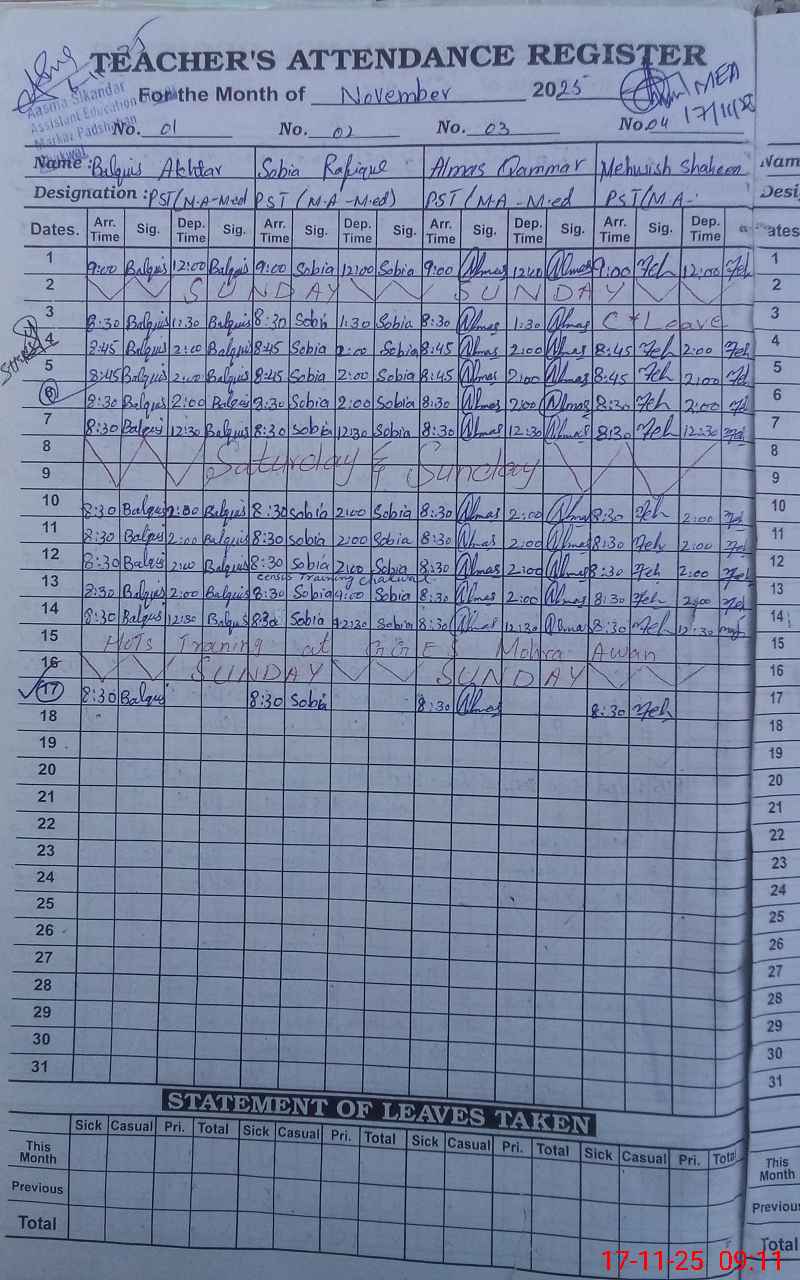 TEACHER'S ATTENDANCE REGISTER
For the Month of November 2025
MEA
17/11/25
Aasma Sikandar
Assistant Education
Markaz Padshahan
No. 01 No. 02 No. 03 No. 04
Name : Balquis Akhtar Sobia Rafique Almas Qammar Mehwish Shaheen Nam
Designation : PST (M.A-M.ed PST (M.A-M.ed) PST (M.A-M.ed PST (M.A- Desig
Dates. Arr. Time Sig. Dep. Time Sig. Arr. Time Sig. Dep. Time Sig. Arr. Time Sig. Dep. Time Sig. Arr. Time Sig. Dep. Time ates
1 9:00 Balquis 12:00 Balquis 9:00 Sobia 12:00 Sobia 9:00 Almas 12:00 Almas 9:00 12:00 1
2 SUNDAY SUNDAY 2
3 8:30 Balquis 1:30 Balquis 8:30 Sobia 1:30 Sobia 8:30 Almas 1:30 Almas C*Leave 3
4 8:45 Balquis 2:00 Balquis 8:45 Sobia 2:00 Sobia 8:45 Almas 2:00 Almas 8:45 2:00 4
5 8:45 Balquis 2:00 Balquis 8:45 Sobia 2:00 Sobia 8:45 Almas 2:00 Almas 8:45 2:00 5
6 8:30 Balquis 2:00 Balquis 8:30 Sobia 2:00 Sobia 8:30 Almas 2:00 Almas 8:30 2:00 6
7 8:30 Balquis 12:30 Balquis 8:30 Sobia 12:30 Sobia 8:30 Almas 12:30 Almas 8:30 12:30 7
8 Saturday & Sunday 8
9 9
10 8:30 Balquis 2:00 Balquis 8:30 Sobia 2:00 Sobia 8:30 Almas 2:00 Almas 8:30 2:00 10
11 8:30 Balquis 2:00 Balquis 8:30 Sobia 2:00 Sobia 8:30 Almas 2:00 Almas 8:30 2:00 11
12 8:30 Balquis 2:00 Balquis 8:30 Sobia 2:00 Sobia 8:30 Almas 2:00 Almas 8:30 2:00 12
census Training Chakwal
13 8:30 Balquis 2:00 Balquis 8:30 Sobia 4:00 Sobia 8:30 Almas 2:00 Almas 8:30 2:00 13
14 8:30 Balquis 12:30 Balquis 8:30 Sobia 12:30 Sobia 8:30 Almas 12:30 Almas 8:30 12:30 14
15 HoTs Training at GGES Mohra Awan 15
16 SUNDAY SUNDAY 16
17 8:30 Balquis 8:30 Sobia 8:30 Almas 8:30 17
18 18
19 19
20 20
21 21
22 22
23 23
24 24
25 25
26 26
27 27
28 28
29 29
30 30
31 31
STATEMENT OF LEAVES TAKEN
Sick Casual Pri. Total Sick Casual Pri. Total Sick Casual Pri. Total Sick Casual Pri. Total
This Month This Month
Previous Previous
Total Total
17-11-25 09:11